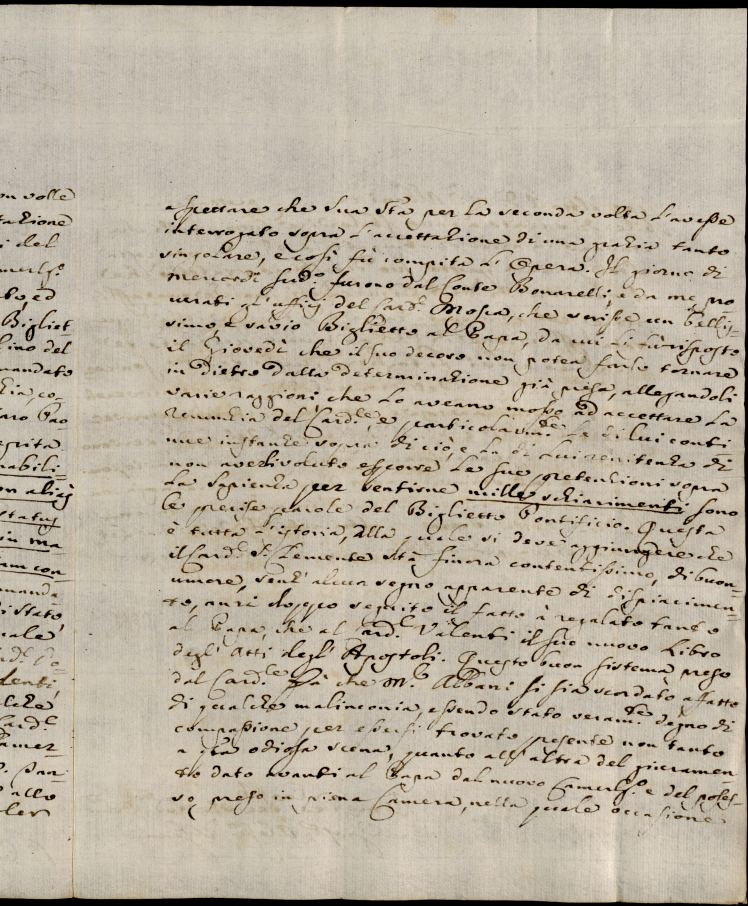 on volle
tazione
i del
amerlgo
bo, ed
Bigliet
lino del
mandato
zia, co-
gerita
nabili-
on aliàs
statuj
in ma
iam con-
manda
i stato
uale
denti
Card.l
Camer-
o allo
aspettare che Sua Stà per la seconda volta l'avesse
interrogato sopra l'accettazione di una grazia tanto
singolare, e così fù compita l'Opera. Il giorno di
Mercordì sud.o furono dal Conte Bonarelli, e da me pro
curati gl'uffizj del Card.l Mosca, che scrisse un bellis-
simo, e savio Biglietto al Papa, da cui li fù risposto
il Giovedì che il suo decoro non potea farlo tornare
in dietro dalla determinazione già presa, allegandoli
varie raggioni che lo aveano mosso ad accettare la
renunzia del Card.le, e particolarm.te le di lui conti
nue instanze sopra di ciò, e la di lui renitenza di
non aver voluto esporre le sue pretenzioni sopra
la Sapienza per sentirne mille schiarimenti sono
le precise parole del Biglietto Pontificio. Questa
è tutta l'istoria, alla quale si deve aggiungere che
il Card.l S. Clemente stà finora contentissimo, di buon-
umore, senz'alcun segno apparente di dispiacimen-
to, anzi doppo seguito il fatto à regalato tanto
al Papa, che al Card.l Valenti il suo nuovo Libro
degl'Atti degl'Apostoli. Questo buon sistema preso
dal Card.le fà che M.r Albani si sia scordato affatto
di qualche malinconia, essendo stato veram.te degno di
compassione per essersi trovato presente non tanto
a stà odiosa scena, quanto all'altra del giuramen
to dato avanti al Papa dal nuovo Camerlgo e del posses-
so preso in piena Camera, nella quale occasione